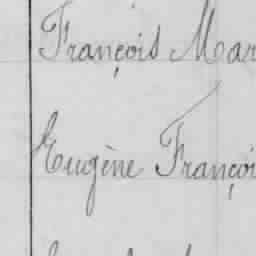 François Mar
Eugène Françoi